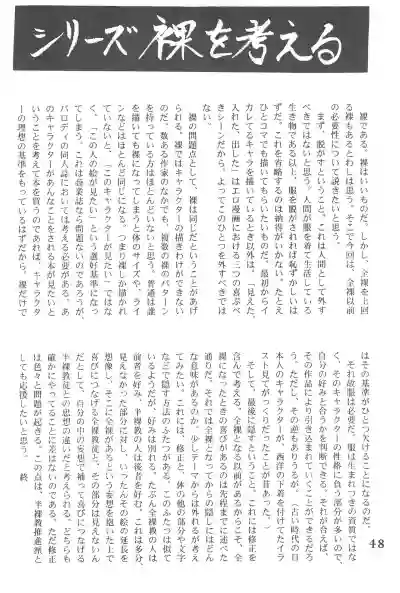 シリーズ 裸を考える
裸である。裸はいいものだ。しかし、全裸を上回
る裸もあるとわしは思う。そこで今回は、全裸以前
の必要性について説きたいと思う。
まず、脱がすということ。これは人間として外す
べきではないと思う。人間が服を着て生活している
生き物である以上、服を脱がされれば恥ずかしいは
ずだ。これを省略するのは納得がいかない。たとえ
ひとコマでも描いてもらいたいものだ。最初からイ
カレてるキャラを描いているとき以外は。「見えた、
入れた、出した」はエロ漫画における三つの喜ぶべ
きシーンだから。よってこのひとつを外すべきでは
ない。
裸の問題点として、裸は同じだということがあげ
られる。裸ではキャラクターの描きわけができない
のだ。数ある作家のなかでも、複数の裸のパターン
を持っている方はほとんどいないと思う。普通は誰
を描いても裸になってしまうと体のサイズや、ライ
ンなどはほとんど同じになる。つまり裸しか描かれ
ていないと、「このキャラクターが見たい」ではな
く、「この人の絵が見たい」という選好基準になっ
てしまう。これは商業誌なら問題ないのであろうが、
パロディの同人誌においては考える必要がある。あ
のキャラクターがあんなことをされる本が見たいと
いうことを考えて本を買うのであれば、キャラクタ
ーの理想の基準をもっているはずだから、裸だけで
はその基準がひとつ欠けることになるのだ。
それ故服は必要だ。服は生まれつきの資質ではな
く、そのキャラクターの性格に負う部分が多いので、
自分の好みと合うかを判断できる。それが合えば、
その作品により引き込まれていくことができるだろ
う。ただし、その逆もあろうが。(古い時代の日
本人のキャラクターが、西洋の下着を付けてたイラ
スト見てがっくりだったことが昔あった。)
そして、最後に隠すということ。これには修正を
含んで考える。全裸となる以前があるからこそ、全
裸になったときの喜びがあるのは先程までに述べた
通りだ。それでは全裸となってからの隠しにはどん
な意味があるのか、少しテーマからは外れるが考え
てみたい。これには、修正と、体の他の部分や文字
などで隠す方法のふたつがある。このふたつは似て
いるようだが、好みは別れる。たぶん全裸教の人は
前者を好み、半裸教の人は後者を好む。これは多分、
見えなかった部分に対し、いったんその絵の延長を
想像し、そこに全裸があるという妄想を抱いた上で
喜びにつなげる全裸教徒と、その部分は見えないん
だとして、自分のり中の妄想で補って喜びにつなげる
半裸教徒との思想の違いだと考えられる。どちらも
確かにやってることに差はないのである。ただ修正
は色々と問題が起きる。この点は、半裸教推進派と
しても応援したいと思う。 終
48